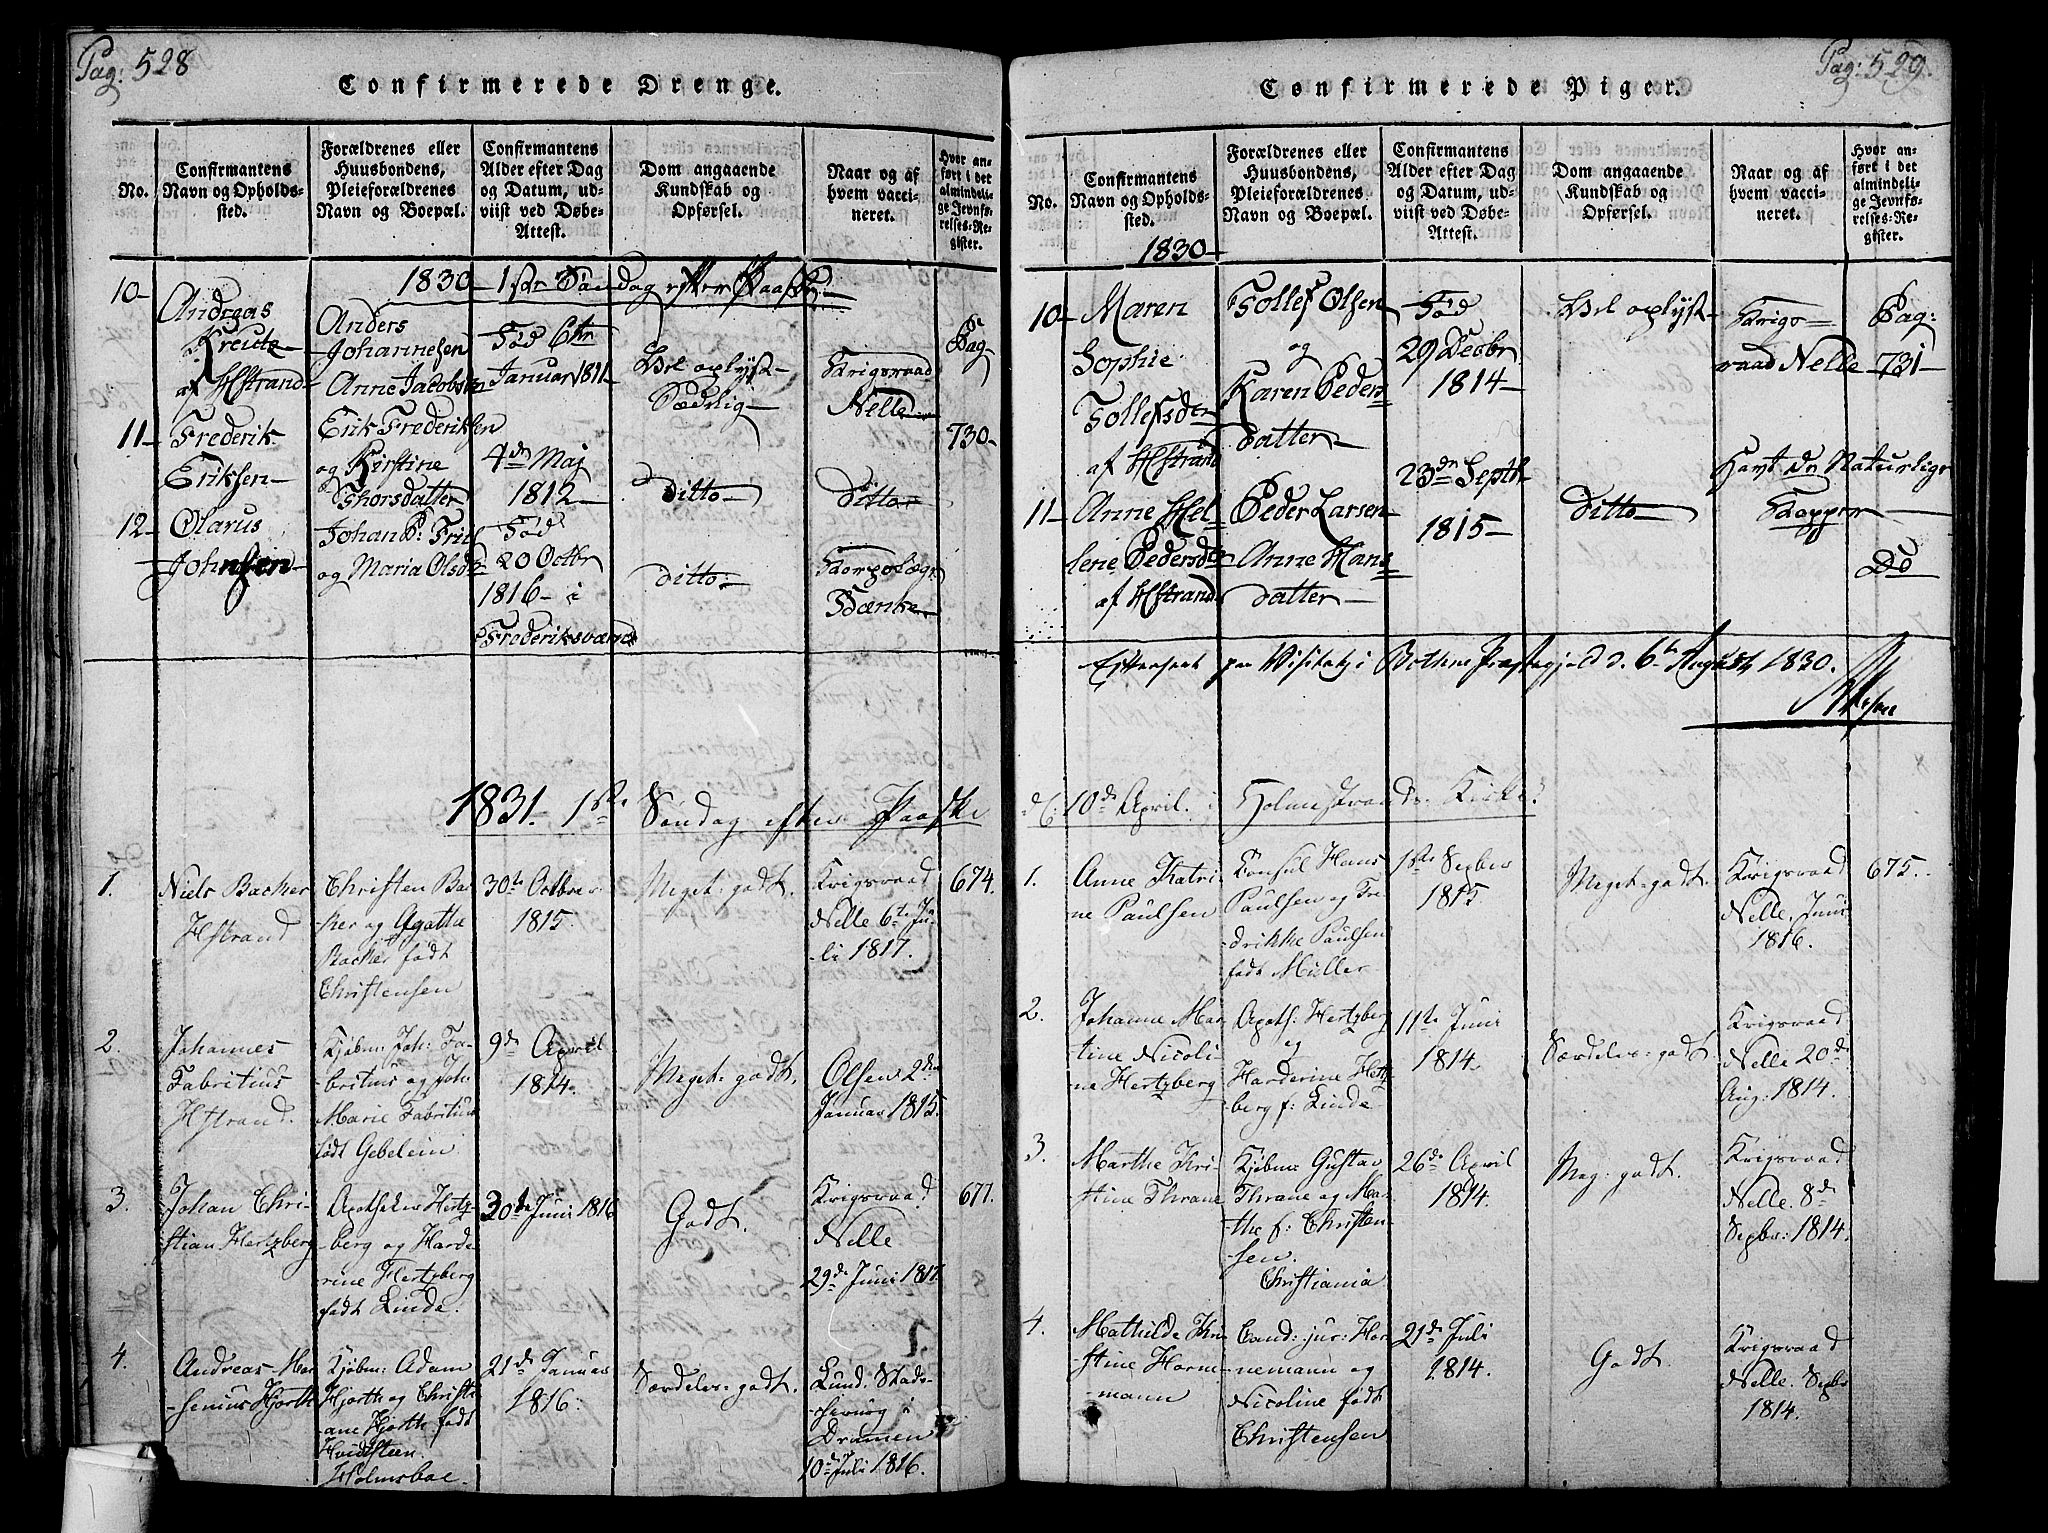 Pag: 528
Confirmerede Drenge.
No.
Confirmantens
Navn og Opholds-
sted.
Forældrenes eller
Huusbondens,
Pleieforældrenes
Navn og Boepæl.
Confirmantens
Alder efter Dag
og Datum, ud-
viist ved Døbe-
Attest.
Dom angaaende
Kundskab og
Opførsel.
Naar og af
hvem vacci-
neret.
Hvor an-
ført i det
almindeli-
ge Jevnfø-
relses-Re-
gister.
1830 1ste Søndag efter Paaske
10-
Andreas
Kreutz
af Hstrand
Anders
Johannesen
Anne Jacobsen
Fød 6te
Januar 1811
Vel oplyst
Sædelig
Krigsraad
Nelle
Pag
11-
Frederik
Eriksen
Erik Frederiksen
og Kirstine
Thorsdatter
4de Maj
1812
ditto
Ditto
730
12-
Olarus
Johnsen
Johan P: Friis
og Maria Olsd
Fød
20 Octbr
1816 i
Frederiksværn
ditto
Korpslæge
Bænke
1831. 1ste Søndag efter Paaske
1.
Niels Backer
Hstrand
Christen Ba-
ker og Agatha
Backer født
Christensen
30te Octbr
1815.
Meget godt.
Krigsraad
Nelle 6te Ju-
li 1817.
674.
2.
Johannes
Fabritius
Hstrand.
Kjøbm: Joh: Fa-
britius og Joh:
Marie Fabritius
født Gebelein
9de April
1814.
Meget godt.
Olsen 2den
Januar 1815.
3.
Johan Chri-
stian Hertzberg
Apotheker Hertz-
berg og Harde-
rine Hertzberg
født Linde.
30te Juni 1816
Godt.
Krigsraad
Nelle
29de Juni 1817.
677.
4.
Andreas Mar-
senius Hjorth
Kjøbm: Adam
Hjorth og Christi-
ane Hjorth født
Hvidsteen
Holmsboe
21de Januar
1816.
Særdeles godt.
Lund. Stads-
chirurg i
Dramen
10de Juli 1816.
Pag: 529.
Confirmerede Piger.
No.
Confirmantens
Navn og Opholds-
sted.
Forældrenes eller
Huusbondens,
Pleieforældrenes
Navn og Boepæl.
Confirmantens
Alder efter Dag
og Datum, ud-
viist ved Døbe-
Attest.
Dom angaaende
Kundskab og
Opførsel.
Naar og af
hvem vacci-
neret.
Hvor an-
ført i det
almindeli-
ge Jevnfø-
relses-Re-
gister.
1830
10-
Maren
Sophie
Tollefsdr
af Hstrand
Tollef Olsen
og
Karen Peders
datter
Fød
29 Decbr
1814
Vel oplyst
Krigs
raad Nelle
Pag:
731
11-
Anne Hel-
lene Pedersdr
af Hstrand
Peder Larsen
Anne Hans
datter
23de Septbr
1815
Ditto
Havt de Naturlige
Kopper
Do
Efterseet paa Visitats i Bottne Præstegjeld d. 6te August 1830.
d: 10de April. i Holmestrands Kirke.
1.
Anne Katri-
ne Paulsen
Konsul Hans
Paulsen og Fre-
drikke Paulsen
født Müller
1ste Septbr
1815
Meget godt.
Krigsraad
Nelle. Juni
1816.
675.
2.
Johanne Mar-
tine Nicoli-
ne Hertzberg
Apoth: Hertzberg
og
Harderine Hertz-
berg f: Linde
11te Juni
1814.
Særdeles godt.
Krigsraad
Nelle 20de
Aug: 1814.
3.
Marthe Kri-
stine Thrane
Kjøbm: Gustav
Thrane og Mar-
the f: Christen-
sen.
Christiania
26de April
1814.
Meg: godt.
Krigsraad
Nelle. 8de
Sepbr: 1814.
4.
Mathilde Kri-
stine Horne-
mann
Cand: jur: Hor-
nemann og
Nicoline født
Christensen
21de Juli
1814.
Godt.
Krigsraad
Nelle. Sepbr
1814.